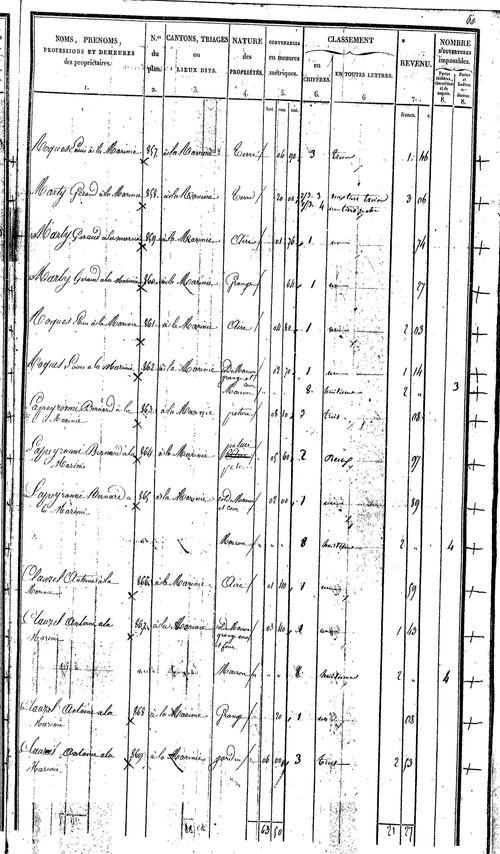 60
NOMS, PRENOMS,
PROFESSIONS ET DEMEURES
des propriétaires.
N.os
du
plan.
CANTONS, TRIAGES
ou
LIEUX DITS.
NATURE
des
PROPRIÉTÉS.
CONTENANCES
en mesures
métriques.
CLASSEMENT
en
CHIFFRES.
EN TOUTES LETTRES.
REVENU.
NOMBRE
D'OUVERTURES
imposables.
1. 2. 3. 4. 5. 6. 6 7. 8. 8.
francs. c.
Roques Pons à la Marinie 857 à la Marinie Terre 06 90 3 trois 1 46
Marty Géraud à la Marinie 858 à la Marinie Terre 20 00 2/3 3 3 06
1/3 4
Marty Géraud à la Marinie 859 à la Marinie 01 76 1 un 74
Marty Géraud à la Marinie 860 à la Marinie Grange 64 1 un 27
Roques Pons à la Marinie 861 à la Marinie 04 80 1 un 2 03
Roques Pons à la Marinie 862 à la Marinie Sol de Maison 02 70 1 un 1 14
grange et
cour
Maison 8 huitieme 2 " 3
Lapeyronnie Bernard à la 863 à la Marinie pature 08 10 3 trois 08
Marinie
Lapeyronnie Bernard à la 864 à la Marinie 05 60 2 Deux 97
Marinie
Lapeyronnie Bernard à 865 à la Marinie sol de Maison 02 00 1 un 89
la Marinie et cour
Maison 8 huitieme 2 " 4
Clauzel Antoine à la 866 à la Marinie 01 40 1 un 59
Marinie
Clauzel Antoine à la 867 à la Marinie sol de Maison 03 40 1 un 1 43
Marinie grange cour
et four
Maison 8 huitieme 2 " 4
Clauzel Antoine à la 868 à la Marinie Grange 20 1 un 08
Marinie
Clauzel Antoine à la 869 à la Marinie jardin 06 00 3 trois 2 53
Marinie
63 50 21 27